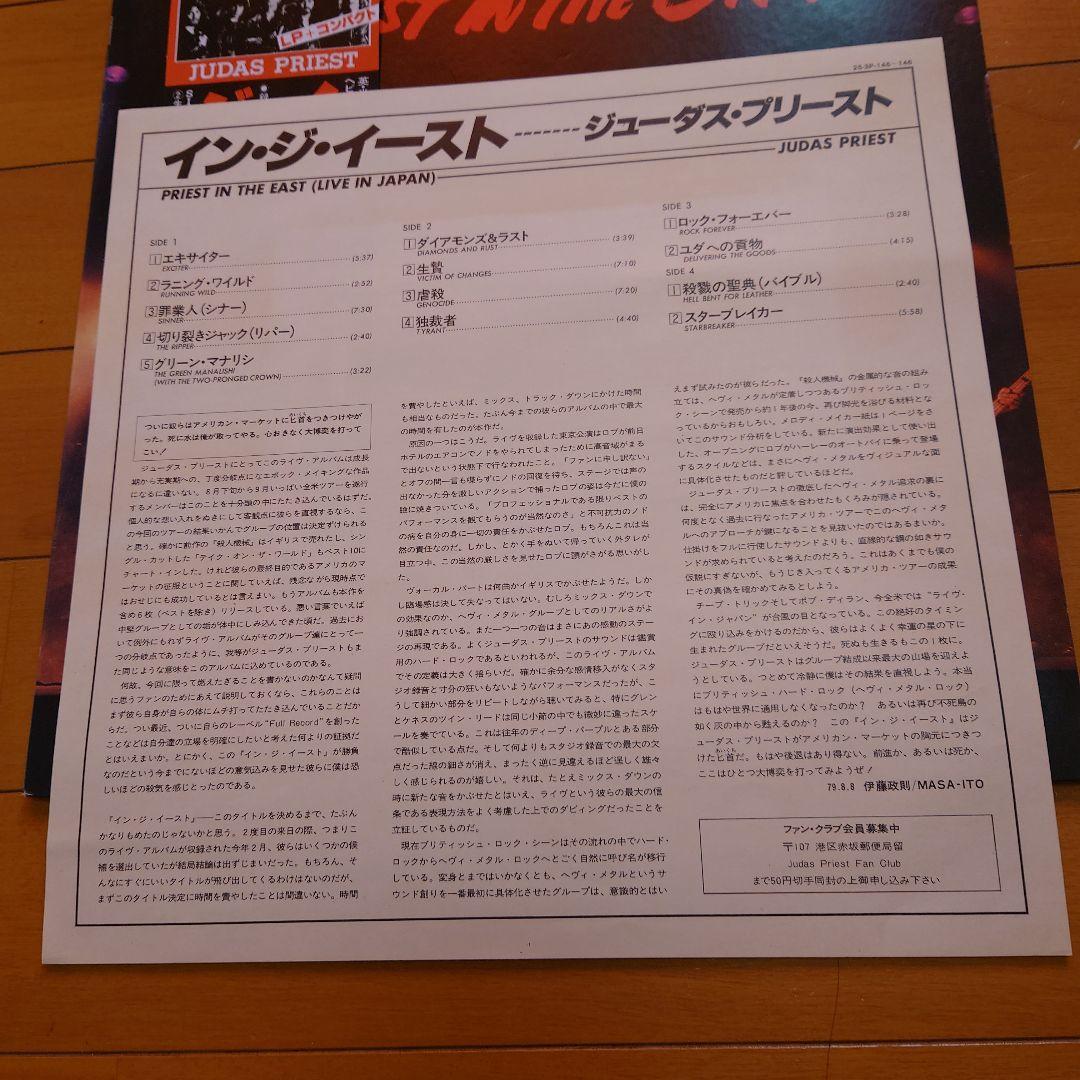 LP+コンパクト
JUDAS PRIEST
25・3P-145~146
イン・ジ・イースト-------ジューダス・プリースト
PRIEST IN THE EAST (LIVE IN JAPAN)
JUDAS PRIEST
SIDE 1
1 エキサイター (5:37)
EXCITER
2 ラニング・ワイルド (2:52)
RUNNING WILD
3 罪業人(シナー) (7:30)
SINNER
4 切り裂きジャック(リパー) (2:40)
THE RIPPER
5 グリーン・マナリシ
THE GREEN MANALISHI
(WITH THE TWO-PRONGED CROWN) (3:22)
SIDE 2
1 ダイアモンズ&ラスト (3:39)
DIAMONDS AND RUST
2 生贄 (7:10)
VICTIM OF CHANGES
3 虐殺 (7:20)
GENOCIDE
4 独裁者 (4:40)
TYRANT
SIDE 3
1 ロック・フォーエバー (3:28)
ROCK FOREVER
2 ユダへの貢物 (4:15)
DELIVERING THE GOODS
SIDE 4
1 殺戮の聖典(バイブル) (2:40)
HELL BENT FOR LEATHER
2 スターブレイカー (5:58)
STARBREAKER
ついに奴らはアメリカン・マーケットに匕首をつきつけやが
った。死に水は俺が取ってやる。心おきなく大博奕を打って
こい!
ジューダス・プリーストにとってこのライヴ・アルバムは成長
期から充実期への、丁度分岐点になるエポック・メイキングな作品
になるに違いない。8月下旬から9月いっぱい全米ツアーを遂行
するメンバーはこのことを十分頭の中にたたき込んでいるはずだ。
個人的な思い入れをぬきにして客観点に彼らを直視するなら、こ
の今回のツアーの結果いかんでグループの位置は決定ずけられる
と思う。確かに前作の『殺人機械』はイギリスで売れたし、シン
グル・カットした「テイク・オン・ザ・ワールド」もベスト10に
チャート・インした。けれど彼らの最終目的であるアメリカのマ
ーケットの征服ということに関していえば、残念ながら現時点で
はおせじにも成功しているとは言えまい。もうアルバムも本作を
含め6枚(ベストを除き)リリースしている。悪い言葉でいえば
中堅グループとしての垢が体中にしみ込んできた頃だ。過去にお
いて例外にもれずライヴ・アルバムがそのグループ達にとって一
つの分岐点であったように、我等がジューダス・プリーストもま
た同じような意味をこのアルバムに込めているのである。
何故、今回に限って燃えたぎることを書かないのかなんて疑問
に思うファンのためにあえて説明しておくなら、これらのことは
まず彼ら自身が自らの体にムチ打ってたたき込んでいることだか
らだ。つい最近、ついに自らのレーベル“Full Record”を創った
ことなどは自分達の立場を明確にしたいと考えた何よりの証拠だ
とはいえまいか。とにかく、この『イン・ジ・イースト』が勝負
なのだという今までにないほどの意気込みを見せた彼らに僕は恐
しいほどの殺気を感じとったのである。
『イン・ジ・イースト』──このタイトルを決めるまで、たぶん
かなりもめたのじゃないかと思う。2度目の来日の際、つまりこ
のライヴ・アルバムが収録された今年2月、彼らはいくつかの候
補を選出していたが結局結論は出ずじまいだった。もちろん、そ
んなにすぐにいいタイトルが飛び出してくるわけはないのだが、
まずこのタイトル決定に時間を費やしたことは間違いない。時間
を費やしたといえば、ミックス、トラック・ダウンにかけた時間
も相当なものだった。たぶん今までの彼らのアルバムの中で最大
の時間を有したのが本作だ。
原因の一つはこうだ。ライヴを収録した東京公演はロブが前日
ホテルのエアコンでノドをやられてしまったために高音域がまる
で出ないという状態下で行なわれたこと。「ファンに申し訳ない」
とオフの間一言も喋らずにノドの回復を待ち、ステージでは声の
出なかった分を激しいアクションで補ったロブの姿は今だに僕の
脳に焼きついている。「プロフェッショナルである限りベストの
パフォーマンスを観てもらうのが当然なのさ」と不可抗力のノド
の病を自分の身に一切の責任をかぶせたロブ。もちろんこれは当
然の責任なのだ。しかし、とかく手をぬいて帰っていく外タレが
目立つ中、この当然の厳しさを見せたロブに頭がさがる思いがし
た。
ヴォーカル・パートは何曲かイギリスでかぶせたようだ。しか
し臨場感は決して失なってはいない。むしろミックス・ダウンで
の効果なのか、ヘヴィ・メタル・グループとしてのリアルさがよ
り強調されている。また一つ一つの音はまさにあの感動のステー
ジの再現である。よくジューダス・プリーストのサウンドは鑑賞
用のハード・ロックであるといわれるが、このライヴ・アルバム
でその定義は大きく揺らいだ。確かに余分な感情移入がなくスタ
ジオ録音と寸分の狂いもないようなパフォーマンスだったが、こ
うして細かい部分をリピートしながら聴いてみると、特にグレン
とケネスのツイン・リードは同じ小節の中でも微妙に違ったスケ
ールを奏でている。これは往年のディープ・パープルとある部分
で酷似している点だ。そして何よりもスタジオ録音での最大の欠
点だった線の細さが消え、まったく逆に見違えるほど逞しく雄々
しく感じられるのが嬉しい。それは、たとえミックス・ダウンの
時に新たな音をかぶせたとはいえ、ライヴという彼らの最大の信
条である表現方法をよく考慮した上でのダビィングだったことを
立証しているものだ。
現在ブリティッシュ・ロック・シーンはその流れの中でハード・
ロックからヘヴィ・メタル・ロックへとごく自然に呼び名が移行
している。変身とまではいかなくとも、ヘヴィ・メタルというサ
ウンド創りを一番最初に具体化させたグループは、意識的とはい
えまず試みたのが彼らだった。『殺人機械』の金属的な音の組み
立ては、ヘヴィ・メタルが定着しつつあるブリティッシュ・ロッ
ク・シーンで発売から約1年後の今、再び脚光を浴びる材料とな
っているからおもしろい。メロディ・メイカー紙は1ページをさ
いてこのサウンド分析をしている。新たに演出効果として使い出
した、オープニングにロブがハーレーのオートバイに乗って登場
するスタイルなどは、まさにヘヴィ・メタルをヴィジュアルな面
に具体化させたものだと評しているほどだ。
ジューダス・プリーストの徹底したヘヴィ・メタル追求の裏に
は、完全にアメリカに焦点を合わせたもくろみが隠されている。
何度となく過去に行なったアメリカ・ツアーでこのヘヴィ・メタ
ルへのアプローチが鍵になることを見抜いたのではあるまいか。
仕掛けをフルに行使したサウンドよりも、直線的な鋼の如きサウ
ンドが求められていると考えたのだろう。これはあくまでも僕の
仮説にすぎないが、もうじき入ってくるアメリカ・ツアーの成果
にその真偽を確かめてみるとしよう。
チープ・トリックそしてボブ・ディラン、今全米では“ライヴ・
イン・ジャパン”が台風の目となっている。この絶好のタイミン
グに殴り込みをかけるのだから、彼らはよくよく幸運の星の下に
生まれたグループだといえそうだ。死ぬも生きるもこの1枚に。
ジューダス・プリーストはグループ結成以来最大の山場を迎えよ
うとしている。つとめて冷静に僕はその結果を直視しよう。本当
にブリティッシュ・ハード・ロック(ヘヴィ・メタル・ロック)
はもはや世界に通用しなくなったのか? あるいは再び不死鳥の
如く灰の中から甦えるのか? この『イン・ジ・イースト』はジ
ューダス・プリーストがアメリカン・マーケットの胸元につきつ
けた匕首だ。もはや後退はあり得ない。前進か、あるいは死か、
ここはひとつ大博奕を打ってみようぜ!
79.8.8 伊藤政則/MASA-ITO
ファン・クラブ会員募集中
〒107 港区赤坂郵便局留
Judas Priest Fan Club
まで50円切手同封の上御申し込み下さい